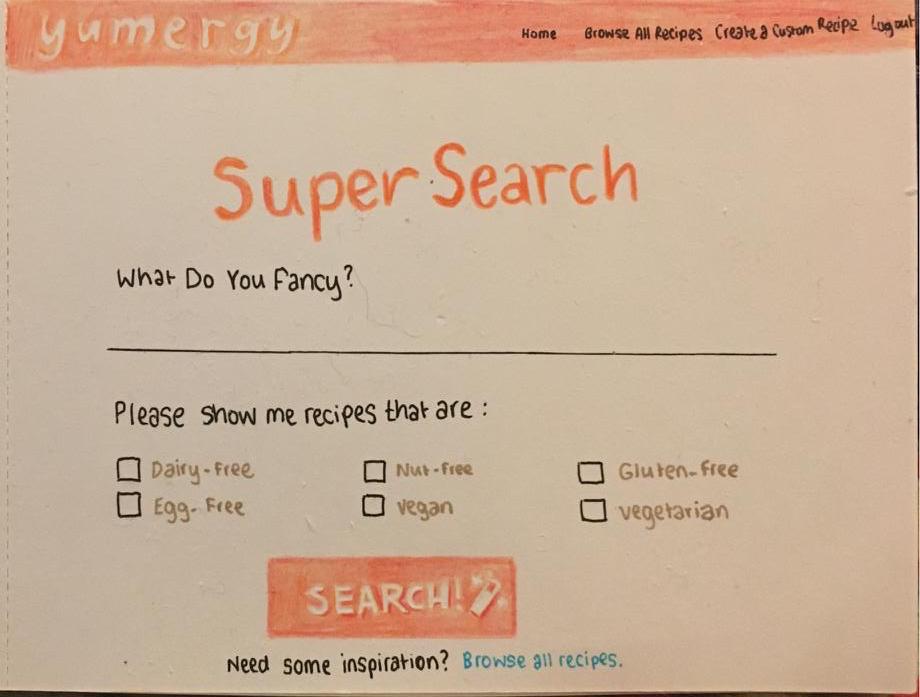 yumergy
Home Browse All Recipes Create a Custom Recipe Logout
Super Search
What Do You Fancy?
Please show me recipes that are :
Dairy-free Nut-free Gluten-free
Egg-Free vegan vegetarian
SEARCH!
Need some inspiration? Browse all recipes.